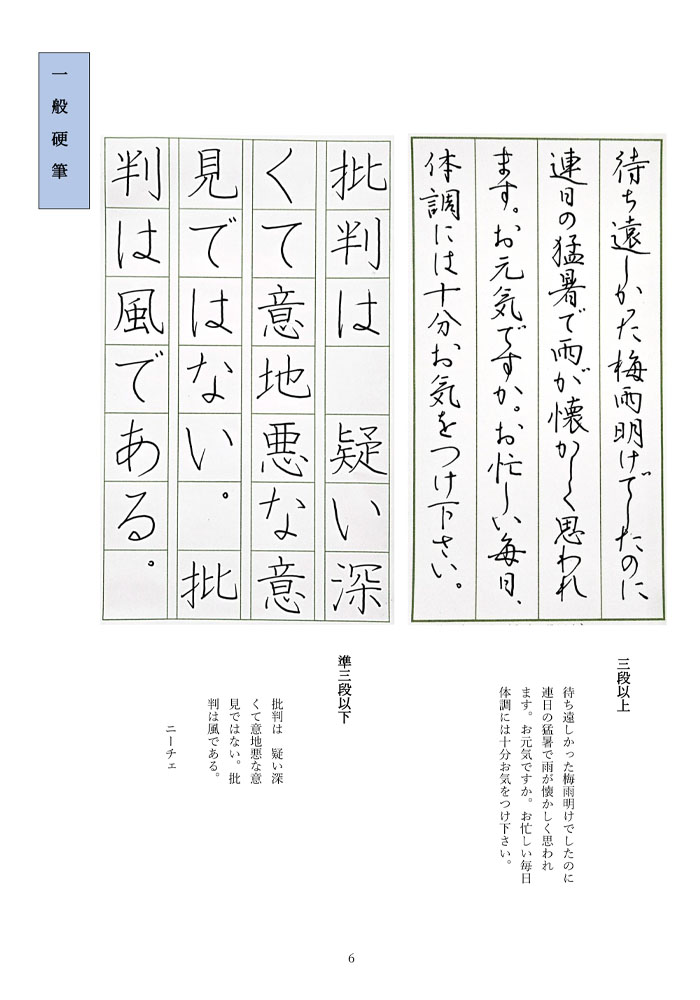 待ち遠しかった梅雨明けでしたのに
連日の猛暑で雨が懐かしく思われ
ます。お元気ですか。お忙しい毎日、
体調には十分お気をつけ下さい。
三段以上
待ち遠しかった梅雨明けでしたのに
連日の猛暑で雨が懐かしく思われ
ます。お元気ですか。お忙しい毎日
体調には十分お気をつけ下さい。
批判は　疑い深
くて意地悪な意
見ではない。批
判は風である。
準三段以下
批判は　疑い深
くて意地悪な意
見ではない。批
判は風である。
ニーチェ
一般硬筆
6